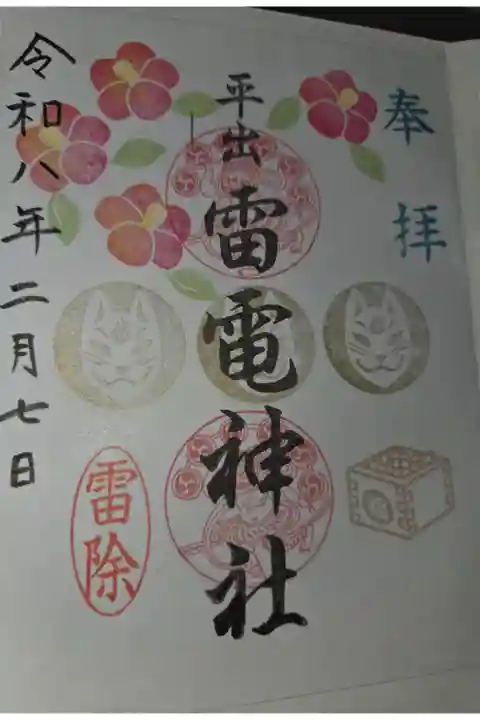 奉拝
平出
雷電神社
雷除
令和八年二月七日